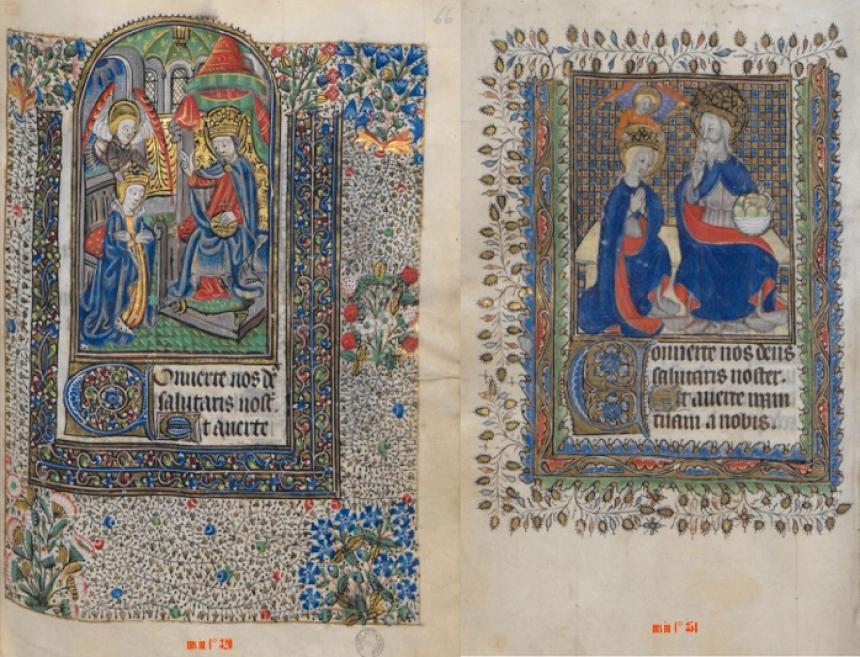 66
Conuerte nos d͂
salutaris nost͂.
Et auerte
Conuerte nos deus
salutaris noster.
Et auerte iram
tuam a nobis.
ms in f° 320
ms in f° 351